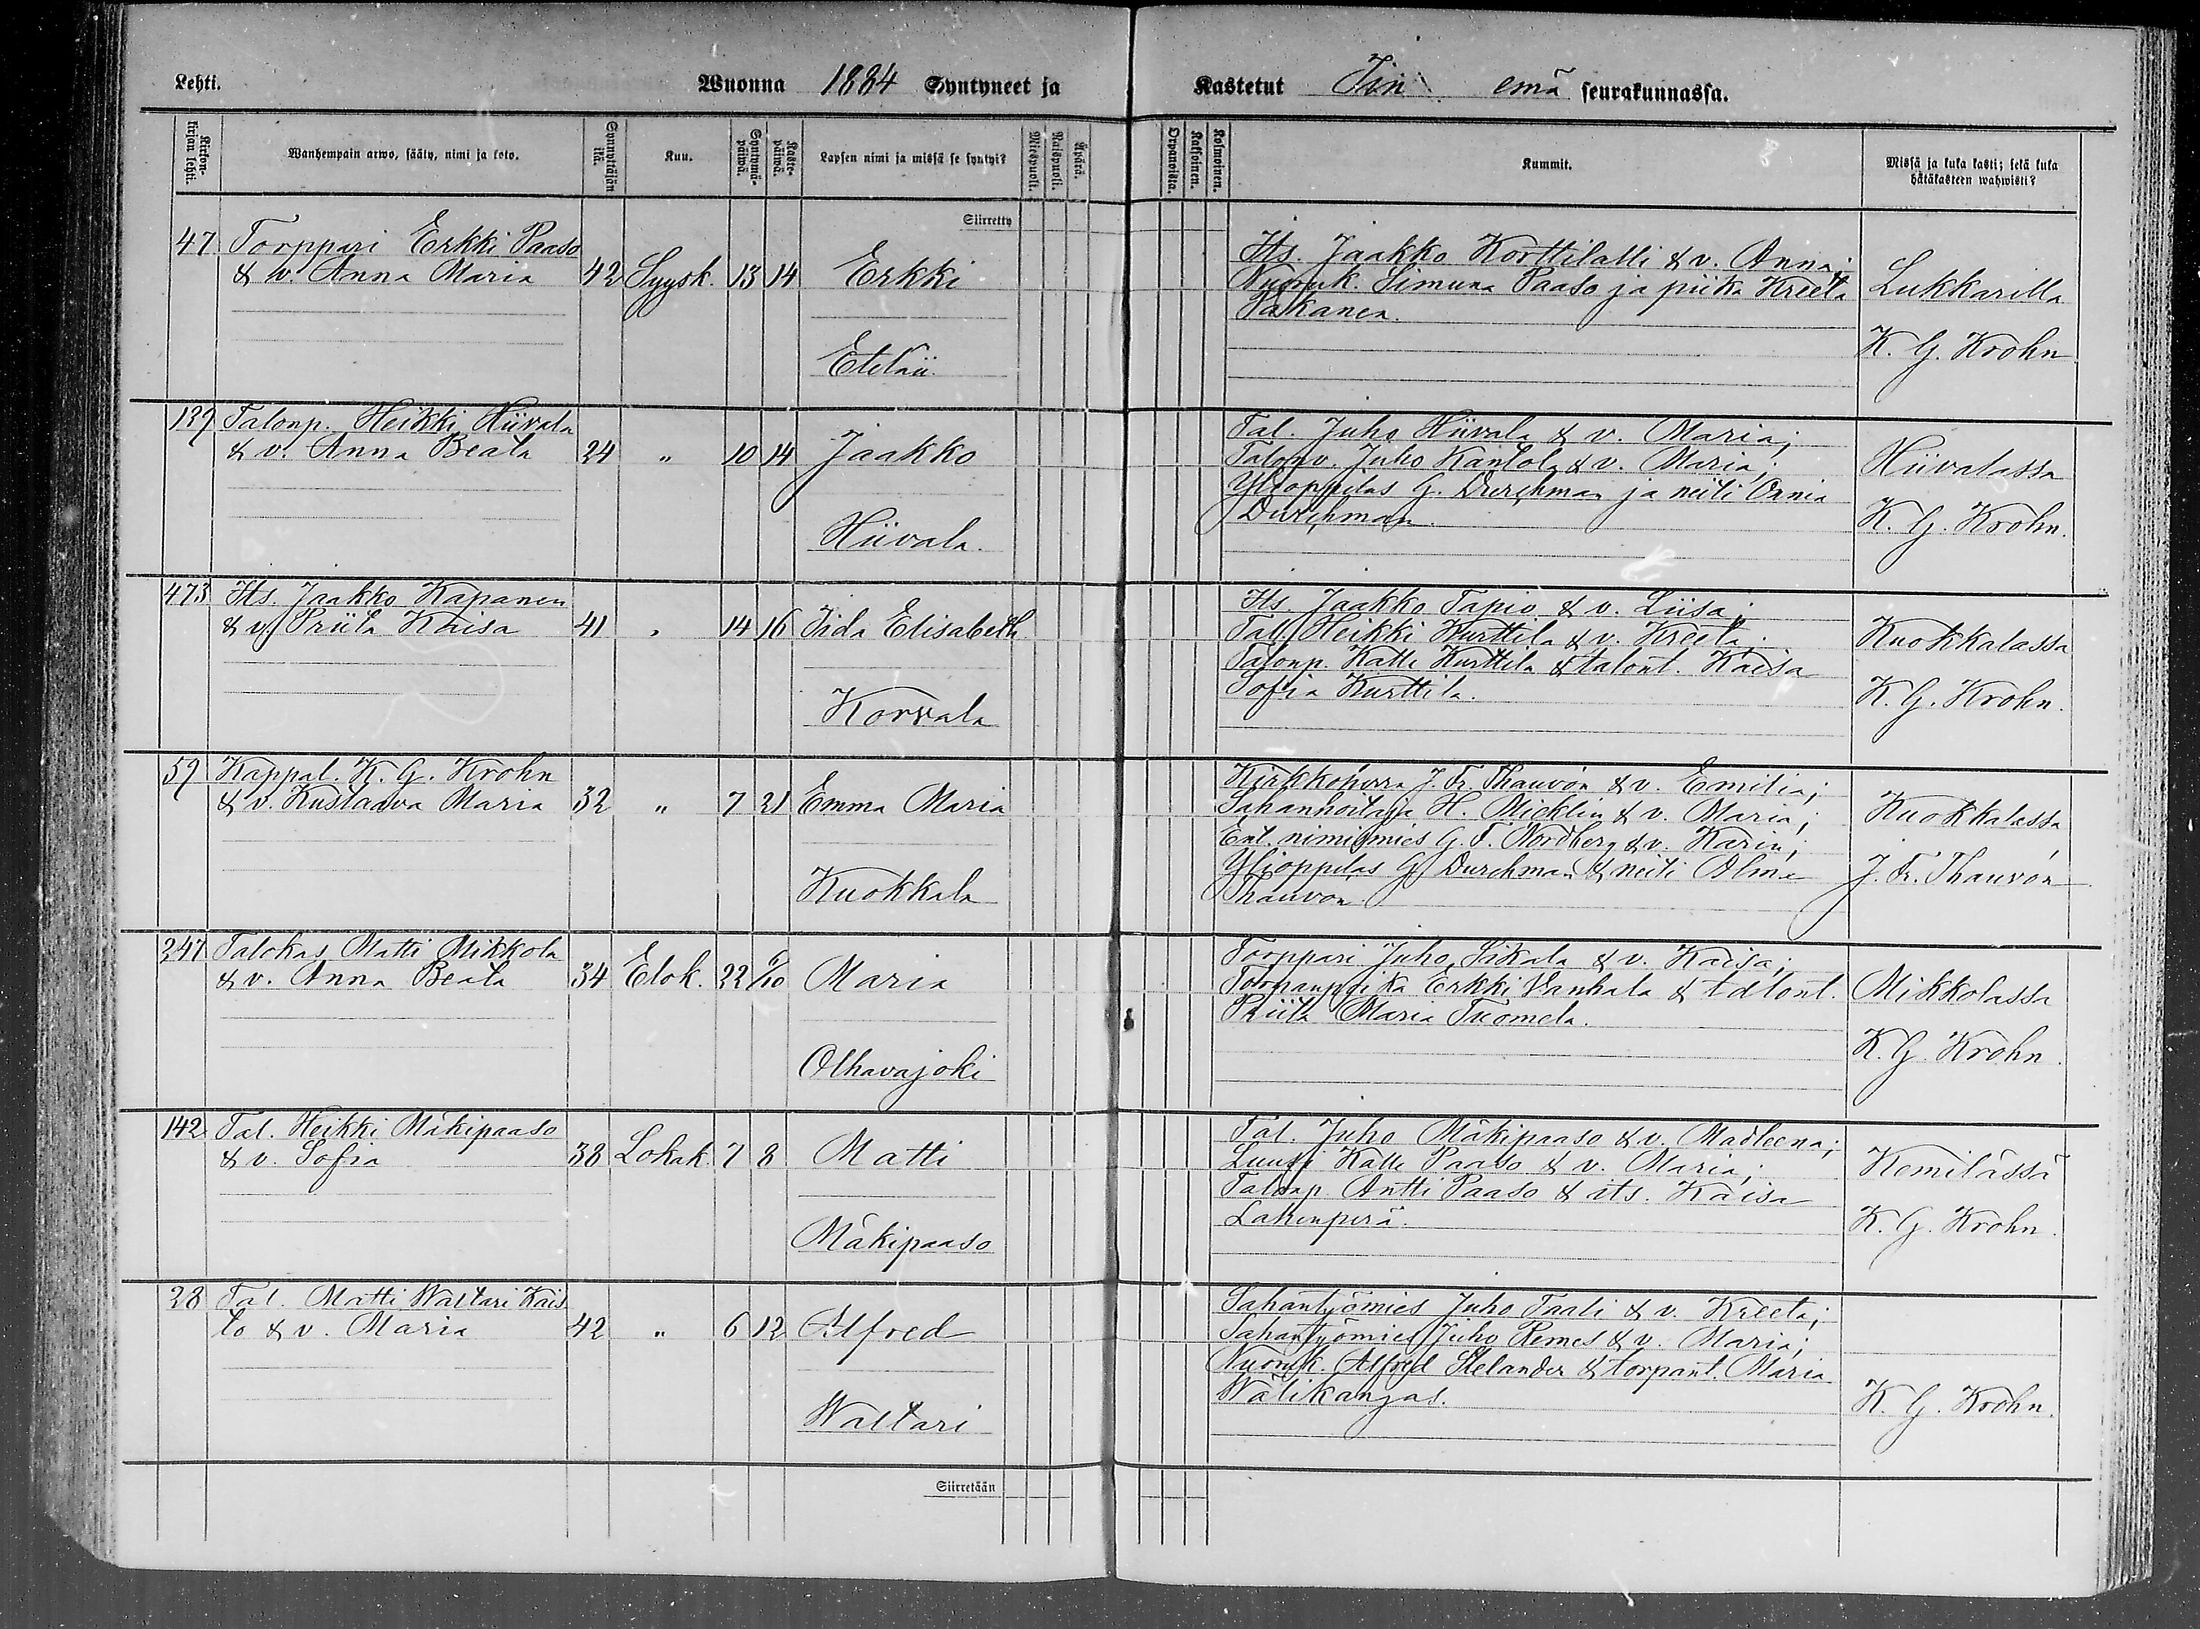 Lehti. Wuonna 1884 Syntyneet ja Kastetut Iin emä seurakunnassa.
Kirkonkirjan lehti. Wanhempain arwo, sääty, nimi ja koto. Synnyttäjän ikä. Kuu. Syntymäpäiwä. Kastepäiwä. Lapsen nimi ja missä se syntyi? Miespuoli. Naispuoli. Äpärä. Orpanoista. Kaksoinen. Kolmoinen. Kummit. Missä ja kuka kasti; sekä kuka hätäkasteen wahwisti?
Siirretty
47 Torppari Erkki Paaso
& v. Anna Maria 42 Syysk. 13 14 Erkki
Etelä Ii
Its. Jaakko Korttilalli & v. Anna;
Nuoruk. Simuna Paaso ja piika Kreeta
Pakanen.
Lukkarilla
K. G. Krohn
139 Talonp. Heikki Hiivala
& v. Anna Beata 24 " 10 14 Jaakko
Hiivala.
Tal. Juho Hiivala & v. Maria;
Talonv. Juho Kantola & v. Maria;
Ylioppilas G. Durchman ja neiti
Durchman.
Hiivalassa
K. G. Krohn.
473 Its. Jaakko Kapanen
& v. Priita Kaisa 41 " 14 16 Iida Elisabeth
Korvala
Its. Jaakko Tapio & v. Liisa;
Tal. Heikki Kurttila & v. Kreeta;
Talonp. Kalle Kurttila & talont. Kaisa
Sofia Kurttila.
Kuokkalassa
K. G. Krohn.
59 Kappal. K. G. Krohn
& v. Kustaava Maria 32 " 7 21 Emma Maria
Kuokkala
Kirkkoherra J. Fr. Thauvón & v. Emilia;
Sahanhoitaja H. Micklin & v. Maria;
Ent. nimismies G. F. Nordberg & v. Karin;
Ylioppilas G. Durchman & neiti Alma
Thauvón.
Kuokkalassa
J. Fr. Thauvón
247 Talokas Matti Mikkola
& v. Anna Beata 34 Elok. 22 6/10 Maria
Olhavajoki
Torppari Juho Sikala & v. Kaisa;
Torpanpoika Erkki Vanhala & talont.
Priita Maria Tuomela.
Mikkolassa
K. G. Krohn.
142 Tal. Heikki Mäkipaaso
& v. Sofia 38 Lokak. 7 8 Matti
Mäkipaaso
Tal. Juho Mäkipaaso & v. Madleena;
Kalle Paaso & v. Maria;
Talonp. Antti Paaso & its. Kaisa
Lakenperä.
Kemilässä
K. G. Krohn.
28 Tal. Matti Waltari Kais
to & v. Maria 42 " 6 12 Alfred
Waltari
Sahantyömies Juho Taali & v. Kreeta;
Sahantyömies Juho Remes & v. Maria;
Nuoruk. Alfred Stelander & torpant. Maria
Wälikangas.
K. G. Krohn.
Siirretään